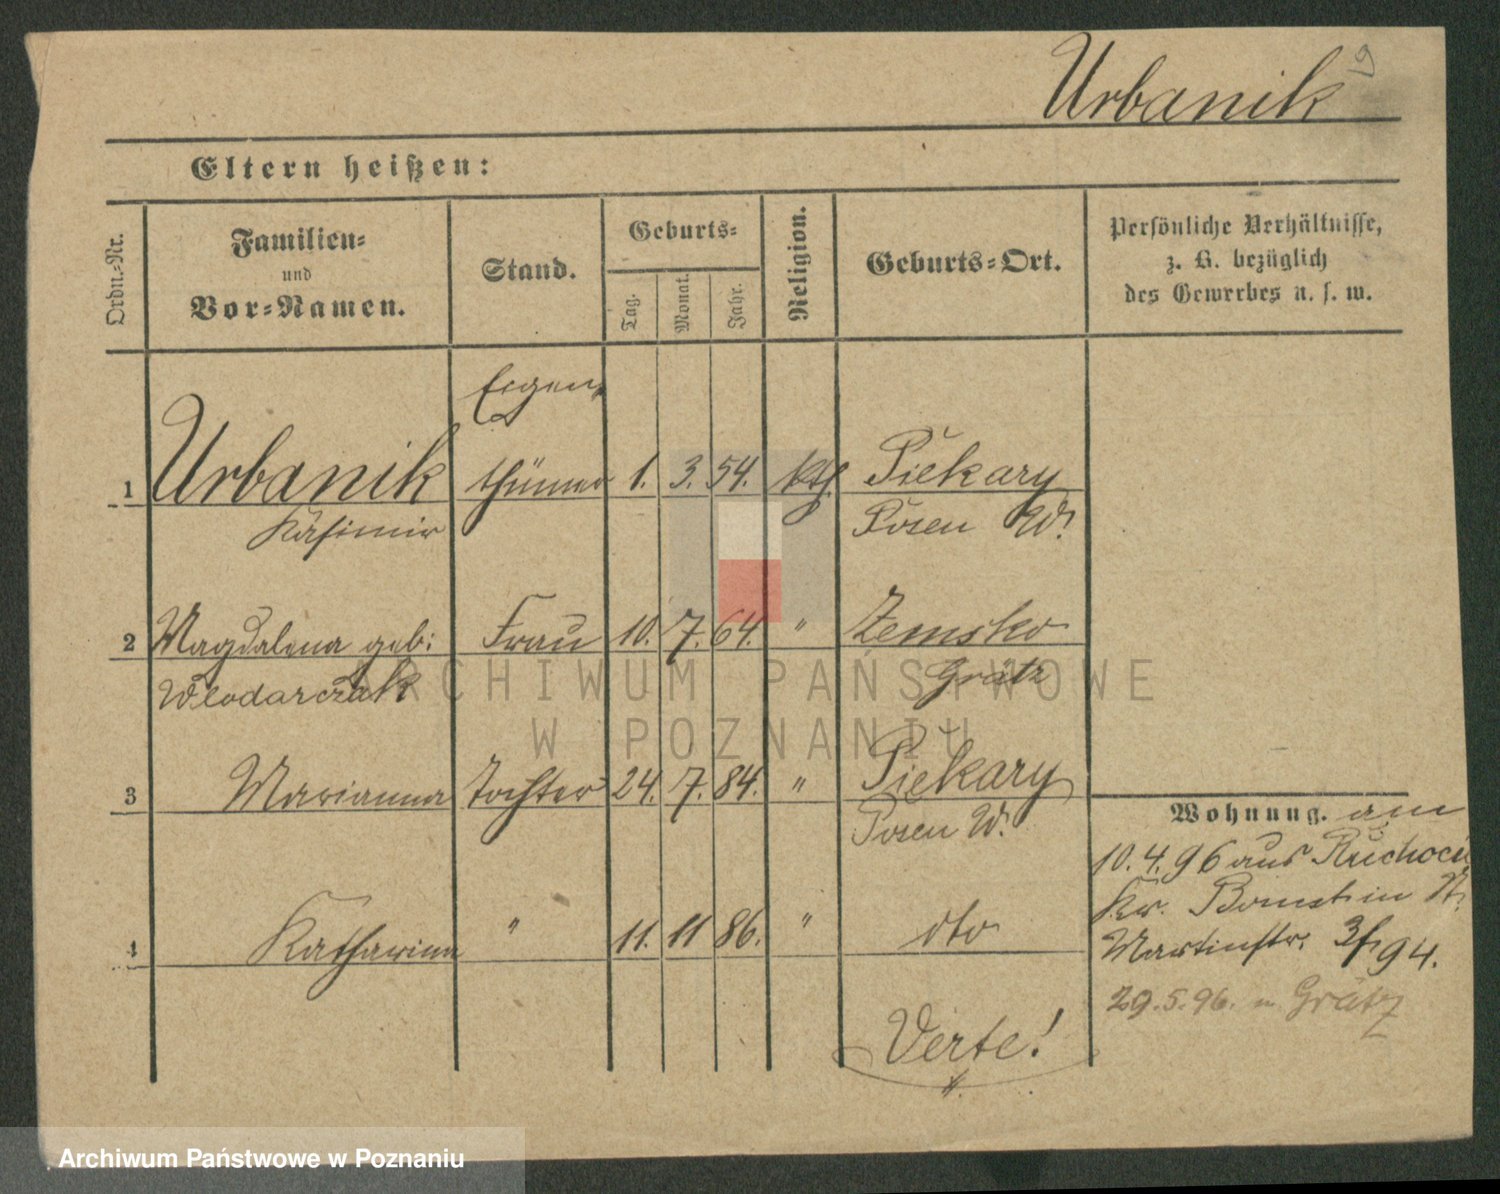 9
Urbanik
Eltern heißen:
Ordn.-Nr.
Familien-
und
Vor-Namen.
Stand.
Geburts-
Tag.
Monat.
Jahr.
Religion.
Geburts-Ort.
Persönliche Verhältnisse,
z. B. bezüglich
des Gewerbes u. s. w.
Eigen,
1 Urbanik thümer 1. 3. 54. kth. Piekary
Kasimir Posen W.
2 Magdalena geb: Frau 10. 7. 64. " Zemsko
Wlodarczak Grätz
3 Marianna Tochter 24. 7. 84. " Piekary
Posen W.
4 Katharina " 11. 11 86. " dto
Verte!
Wohnung. am
10.4.96 aus Ruchocic
Kr. Bomst in
Martinstr. 94.
29.5.96. n Grätz
ARCHIWUM PAŃSTWOWE
W POZNANIU
Archiwum Państwowe w Poznaniu